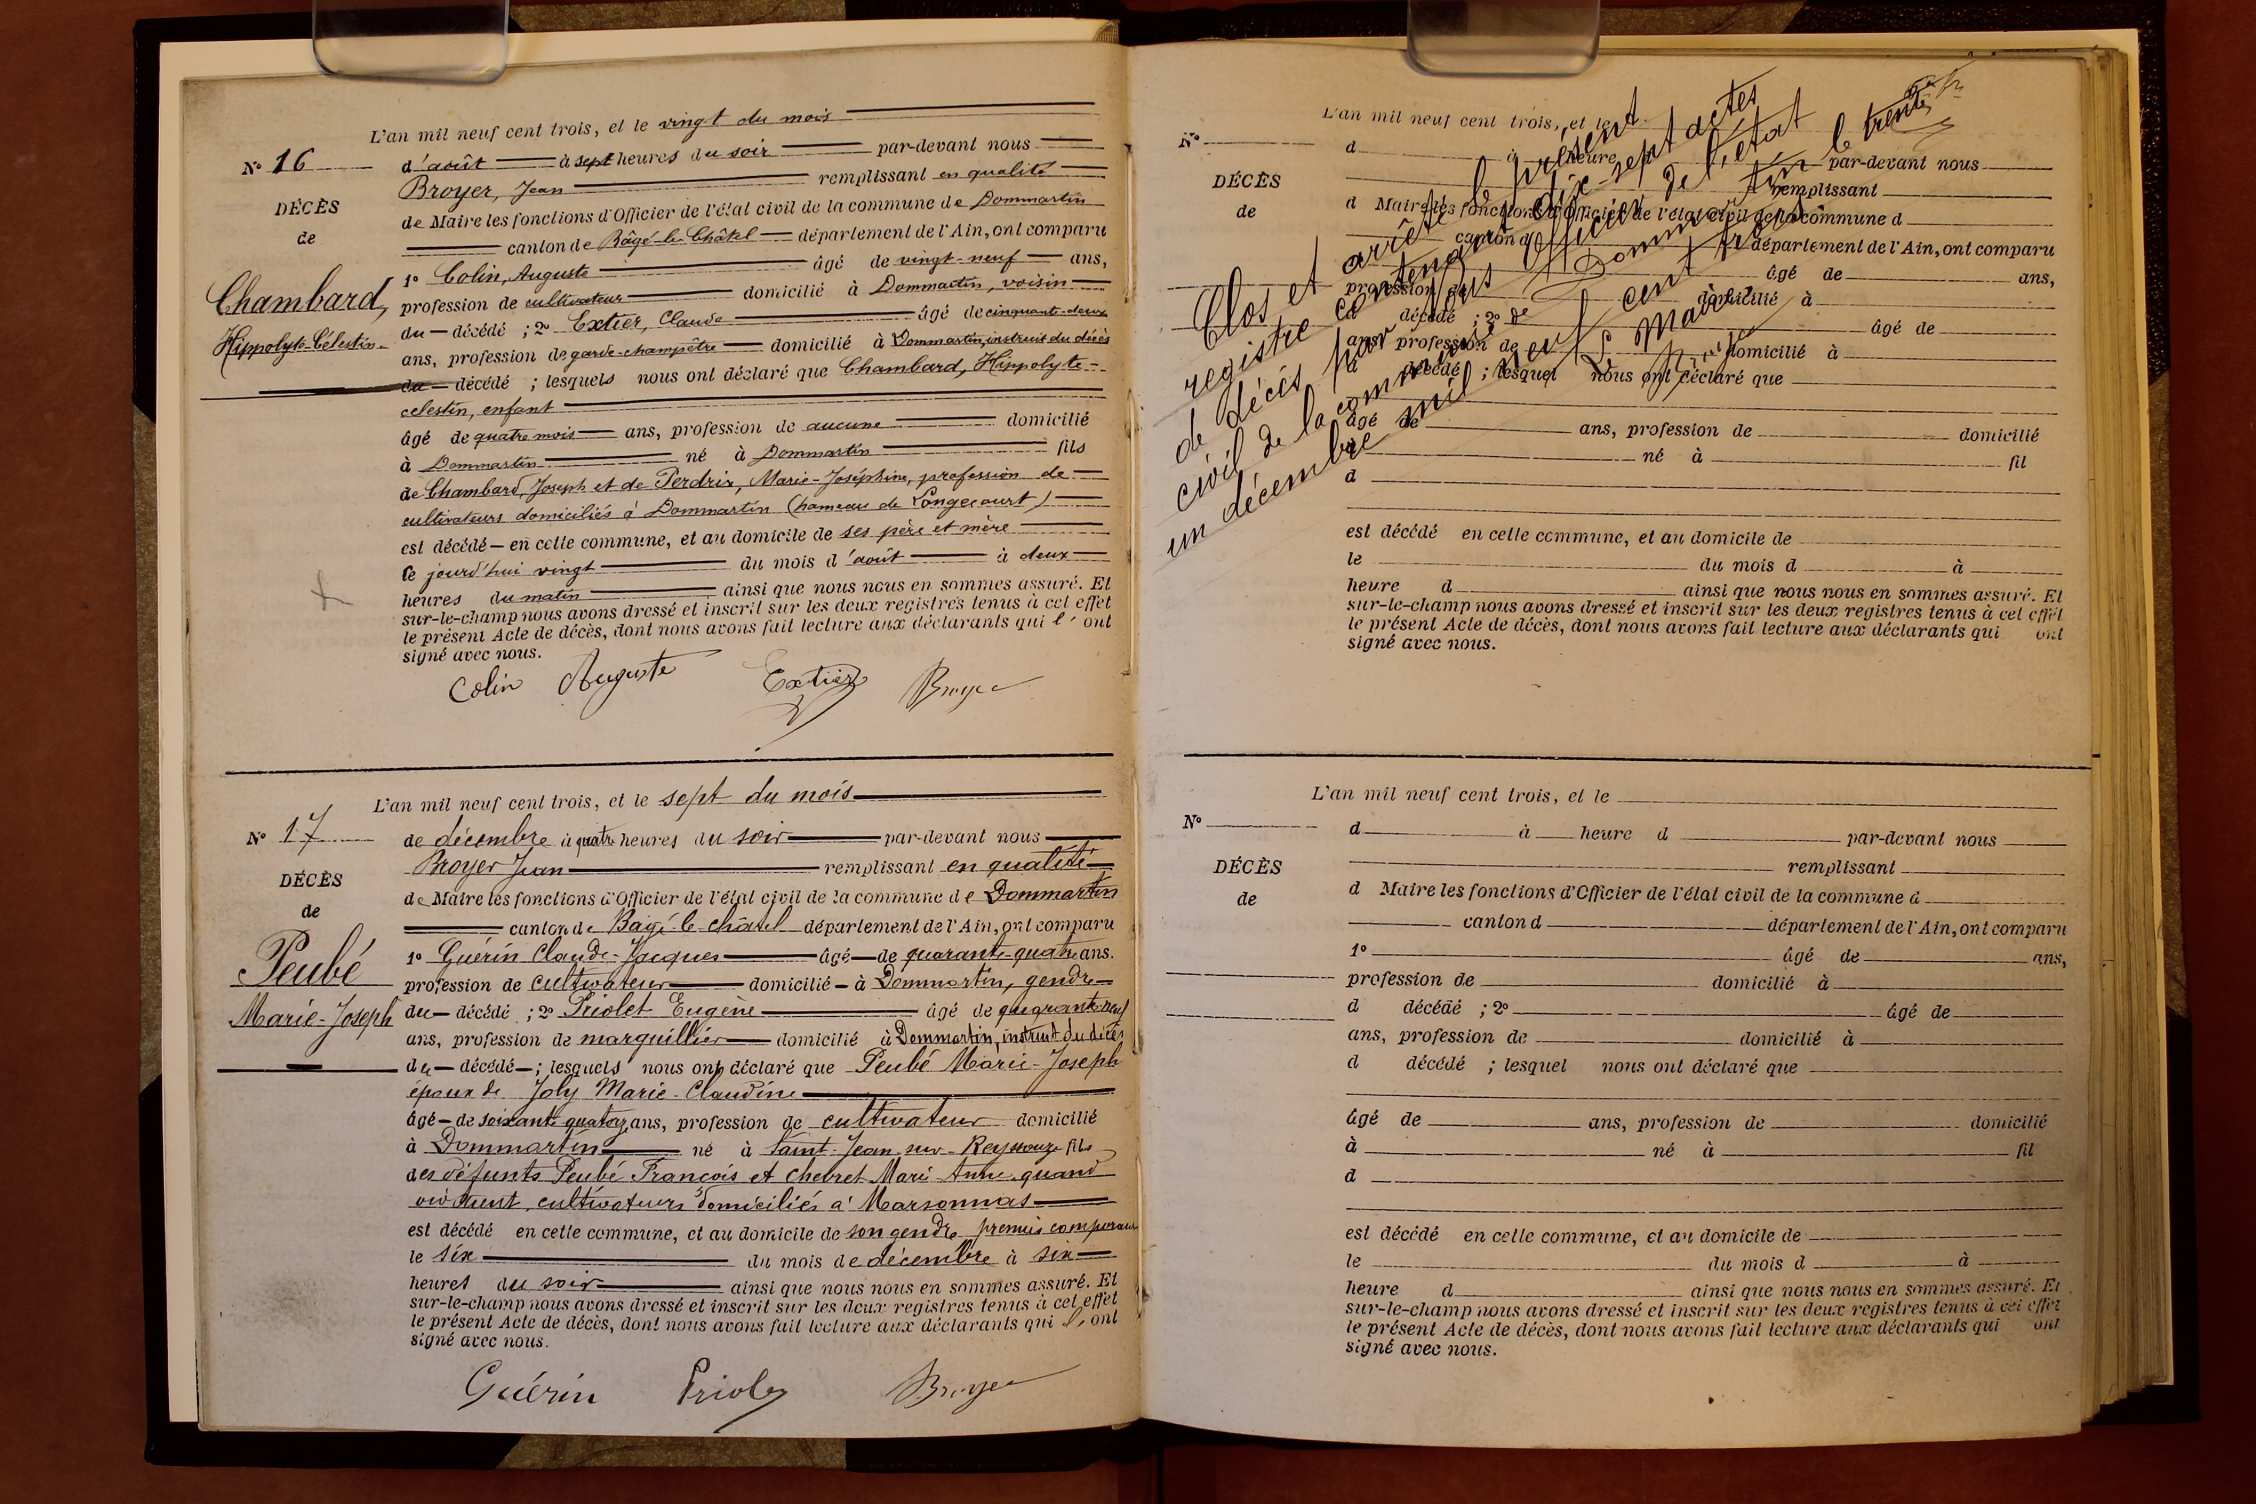 L'an mil neuf cent trois, et le vingt du mois
N° 16
d'août à sept heures du soir par-devant nous
DÉCÈS
Broyer, Jean remplissant en qualité
de
de Maire les fonctions d'Officier de l'état civil de la commune de Dommartin
canton de Bâgé-le-Châtel département de l'Ain, ont comparu
Chambard,
1° Colin, Auguste âgé de vingt-neuf ans,
profession de cultivateur domicilié à Dommartin, voisin
Hippolyte-Célestin.
du décédé ; 2° Extier, Claude âgé de cinquante-deux
ans, profession de garde-champêtre domicilié à Dommartin, instruit du décès
du décédé ; lesquels nous ont déclaré que Chambard, Hippolyte-
celestin, enfant
âgé de quatre mois ans, profession de aucune domicilié
à Dommartin né à Dommartin fils
de Chambard, Joseph et de Perdrix, Marie-Joséphine, profession de
cultivateurs domiciliés à Dommartin (hameau de Longecourt)
est décédé en cette commune, et au domicile de ses père et mère
le jourd'hui vingt du mois d'août à deux
heures du matin ainsi que nous nous en sommes assuré. Et
sur-le-champ nous avons dressé et inscrit sur les deux registres tenus à cet effet
le présent Acte de décès, dont nous avons fait lecture aux déclarants qui l'ont
signé avec nous.
Colin Auguste Extier Broyer
L'an mil neuf cent trois, et le sept du mois
N° 17
de décembre à quatre heures du soir par-devant nous
DÉCÈS
Broyer Jean remplissant en qualité
de
de Maire les fonctions d'Officier de l'état civil de la commune de Dommartin
canton de Bagé-le-châtel département de l'Ain, ont comparu
Peubé
1° Guérin Claude-Jacques âgé de quarante-quatre ans.
profession de cultivateur domicilié à Dommartin, gendre
Marie-Joseph
du décédé ; 2° Priolet Eugène âgé de quarante-neuf
ans, profession de marguillier domicilié à Dommartin, instruit du décès
du décédé ; lesquels nous ont déclaré que Peubé Marie-Joseph
époux de Joly Marie-Claudine
âgé de soixante quatorze ans, profession de cultivateur domicilié
à Dommartin né à Saint-Jean-sur-Reyssouze fils
des défunts Peubé François et Chevret Marie Anne quand
vivaient cultivateurs domiciliés à Marsonnas
est décédé en cette commune, et au domicile de son gendre premier comparant
le six du mois de décembre à six
heures du soir ainsi que nous nous en sommes assuré. Et
sur-le-champ nous avons dressé et inscrit sur les deux registres tenus à cet effet
le présent Acte de décès, dont nous avons fait lecture aux déclarants qui l'ont
signé avec nous.
Guérin Priolet Broyer
Clos et arrêté le présent
registre contenant dix-sept actes
de décès par nous Officier de l'état
civil de la commune de Dommartin le trente
un décembre mil neuf cent trois.
Le Maire
L'an mil neuf cent trois, et le
N° d à heure d par-devant nous
DÉCÈS
remplissant
de
d Maire les fonctions d'Officier de l'état civil de la commune d
canton d département de l'Ain, ont comparu
âgé de ans,
profession de domicilié à
d décédé ; 2° âgé de
ans, profession de domicilié à
d décédé ; lesquel nous ont déclaré que
âgé de ans, profession de domicilié
à né à fil
d
est décédé en cette commune, et au domicile de
le du mois d à
heure d ainsi que nous nous en sommes assuré. Et
sur-le-champ nous avons dressé et inscrit sur les deux registres tenus à cet effet
le présent Acte de décès, dont nous avons fait lecture aux déclarants qui ont
signé avec nous.
L'an mil neuf cent trois, et le
N°
d à heure d par-devant nous
DÉCÈS
remplissant
de
d Maire les fonctions d'Officier de l'état civil de la commune d
canton d département de l'Ain, ont comparu
1° âgé de ans,
profession de domicilié à
d décédé ; 2° âgé de
ans, profession de domicilié à
d décédé ; lesquel nous ont déclaré que
âgé de ans, profession de domicilié
à né à fil
d
est décédé en cette commune, et au domicile de
le du mois d à
heure d ainsi que nous nous en sommes assuré. Et
sur-le-champ nous avons dressé et inscrit sur les deux registres tenus à cet effet
le présent Acte de décès, dont nous avons fait lecture aux déclarants qui ont
signé avec nous.